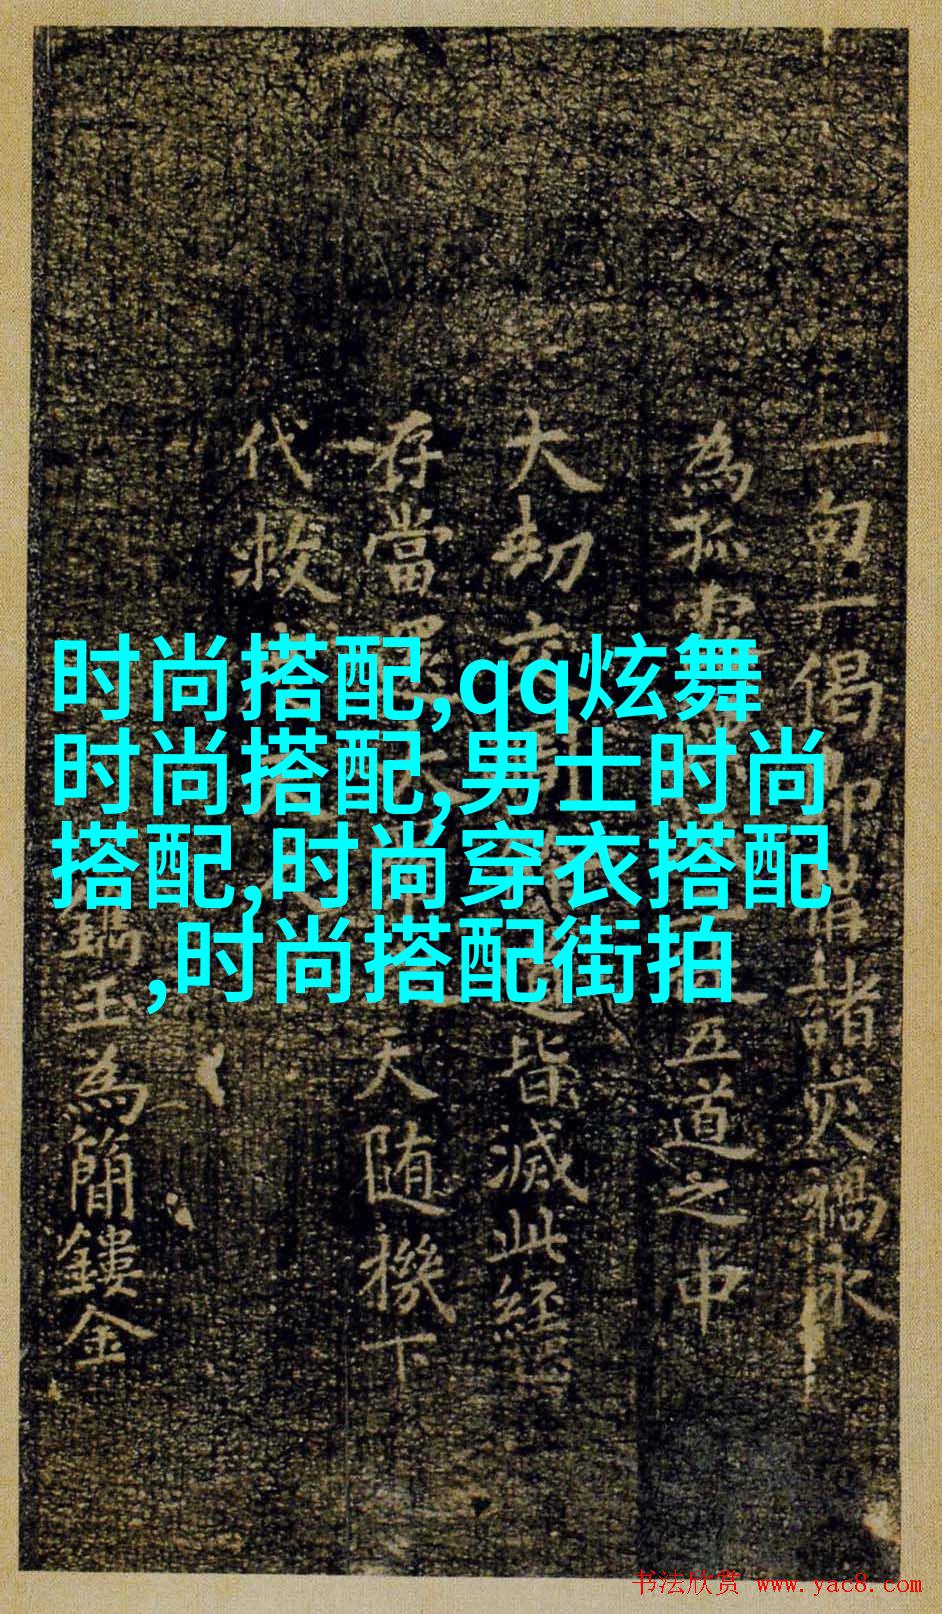 一句一偈即催諸灾禍永
為孤
五道之中
大劫
皆滅此經
存當
天随機下
代救
玉為簡鏤金
时尚搭配,qq炫舞
时尚搭配,男士时尚
搭配,时尚穿衣搭配
,时尚搭配街拍
书法欣赏 www.yac8.com